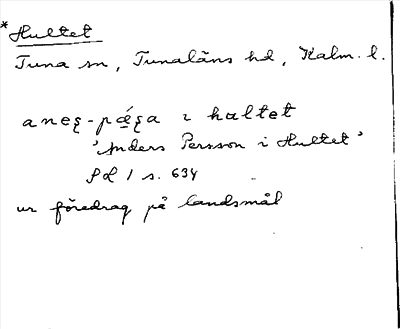 *Hultet
Tuna sn, Tunaläns hd, Kalm. l.
aneʂ-pǽʂa ı hultet
'Anders Persson i Hultet'
SL 1 s. 634
ur föredrag på landsmål